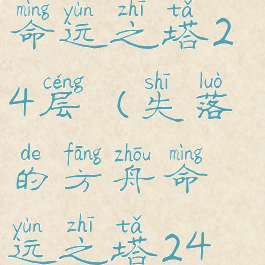 mìng yùn zhī tǎ
命运之塔2
céng shī luò
4层（失落
de fāng zhōu mìng
的方舟命
yùn zhī tǎ
运之塔24